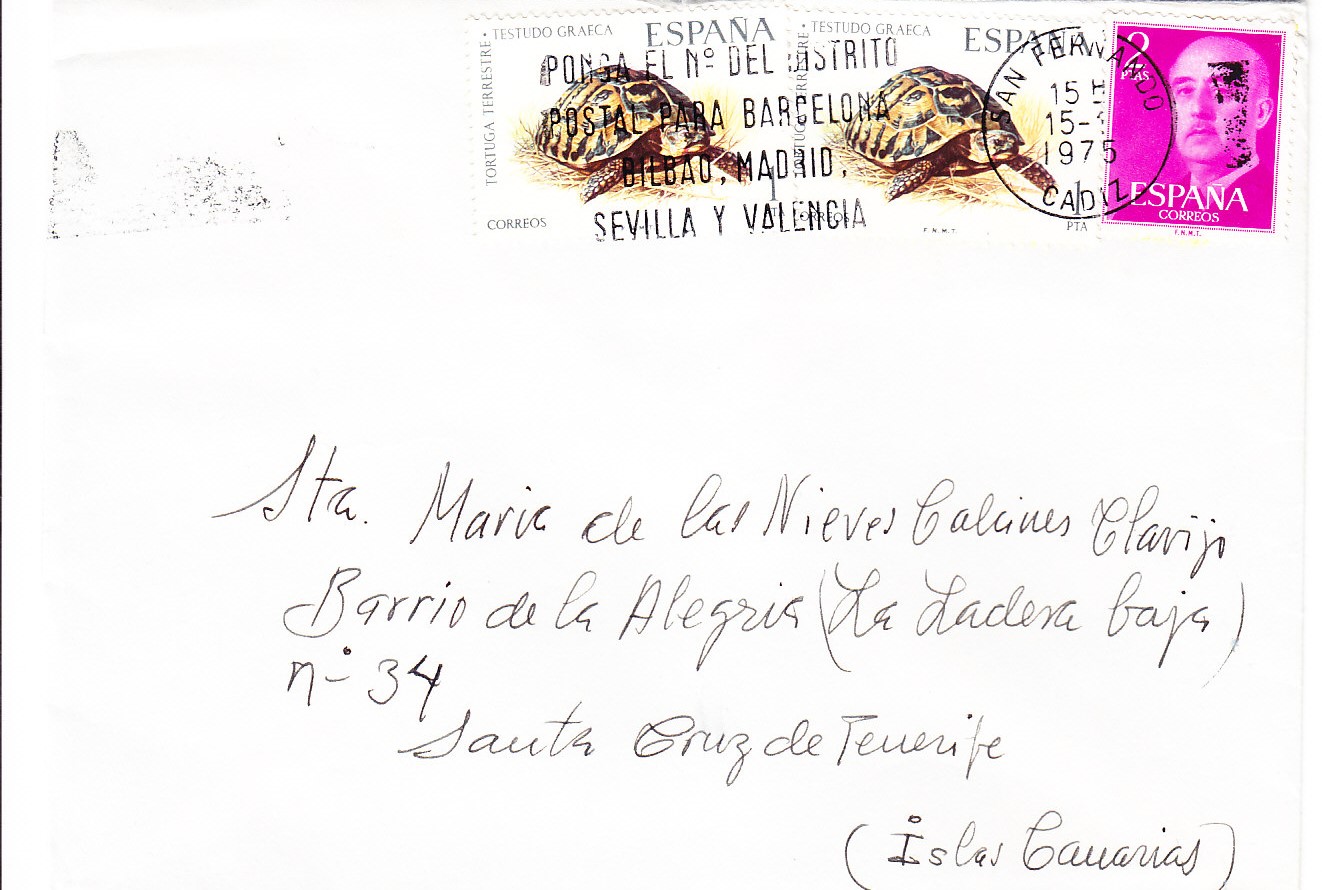 TESTUDO GRAECA ESPAÑA
TORTUGA TERRESTRE
CORREOS
1
TESTUDO GRAECA ESPAÑA
CORREOS
F.N.M.T.
1
PTA
2
PTAS
ESPAÑA
CORREOS
F.N.M.T.
PONGA EL Nº DEL DISTRITO
POSTAL PARA BARCELONA
BILBAO, MADRID,
SEVILLA Y VALENCIA
SAN FERNANDO
15 H
15-
1975
CADIZ
Sta. Maria de las Nieves Calcines Clavijo
Barrio de la Alegria (La Ladera baja)
nº 34
Santa Cruz de Tenerife
(Islas Canarias)